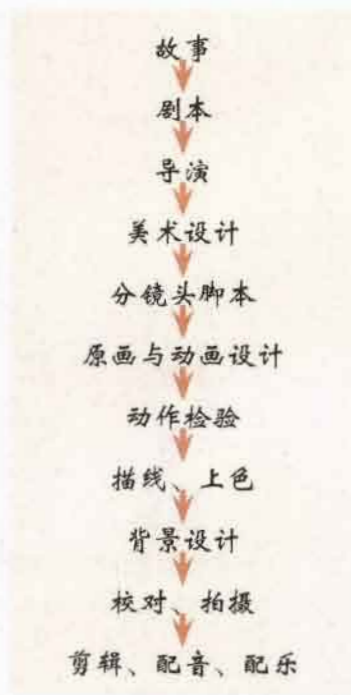 故事
剧本
导演
美术设计
分镜头脚本
原画与动画设计
动作检验
描线、上色
背景设计
校对、拍摄
剪辑、配音、配乐